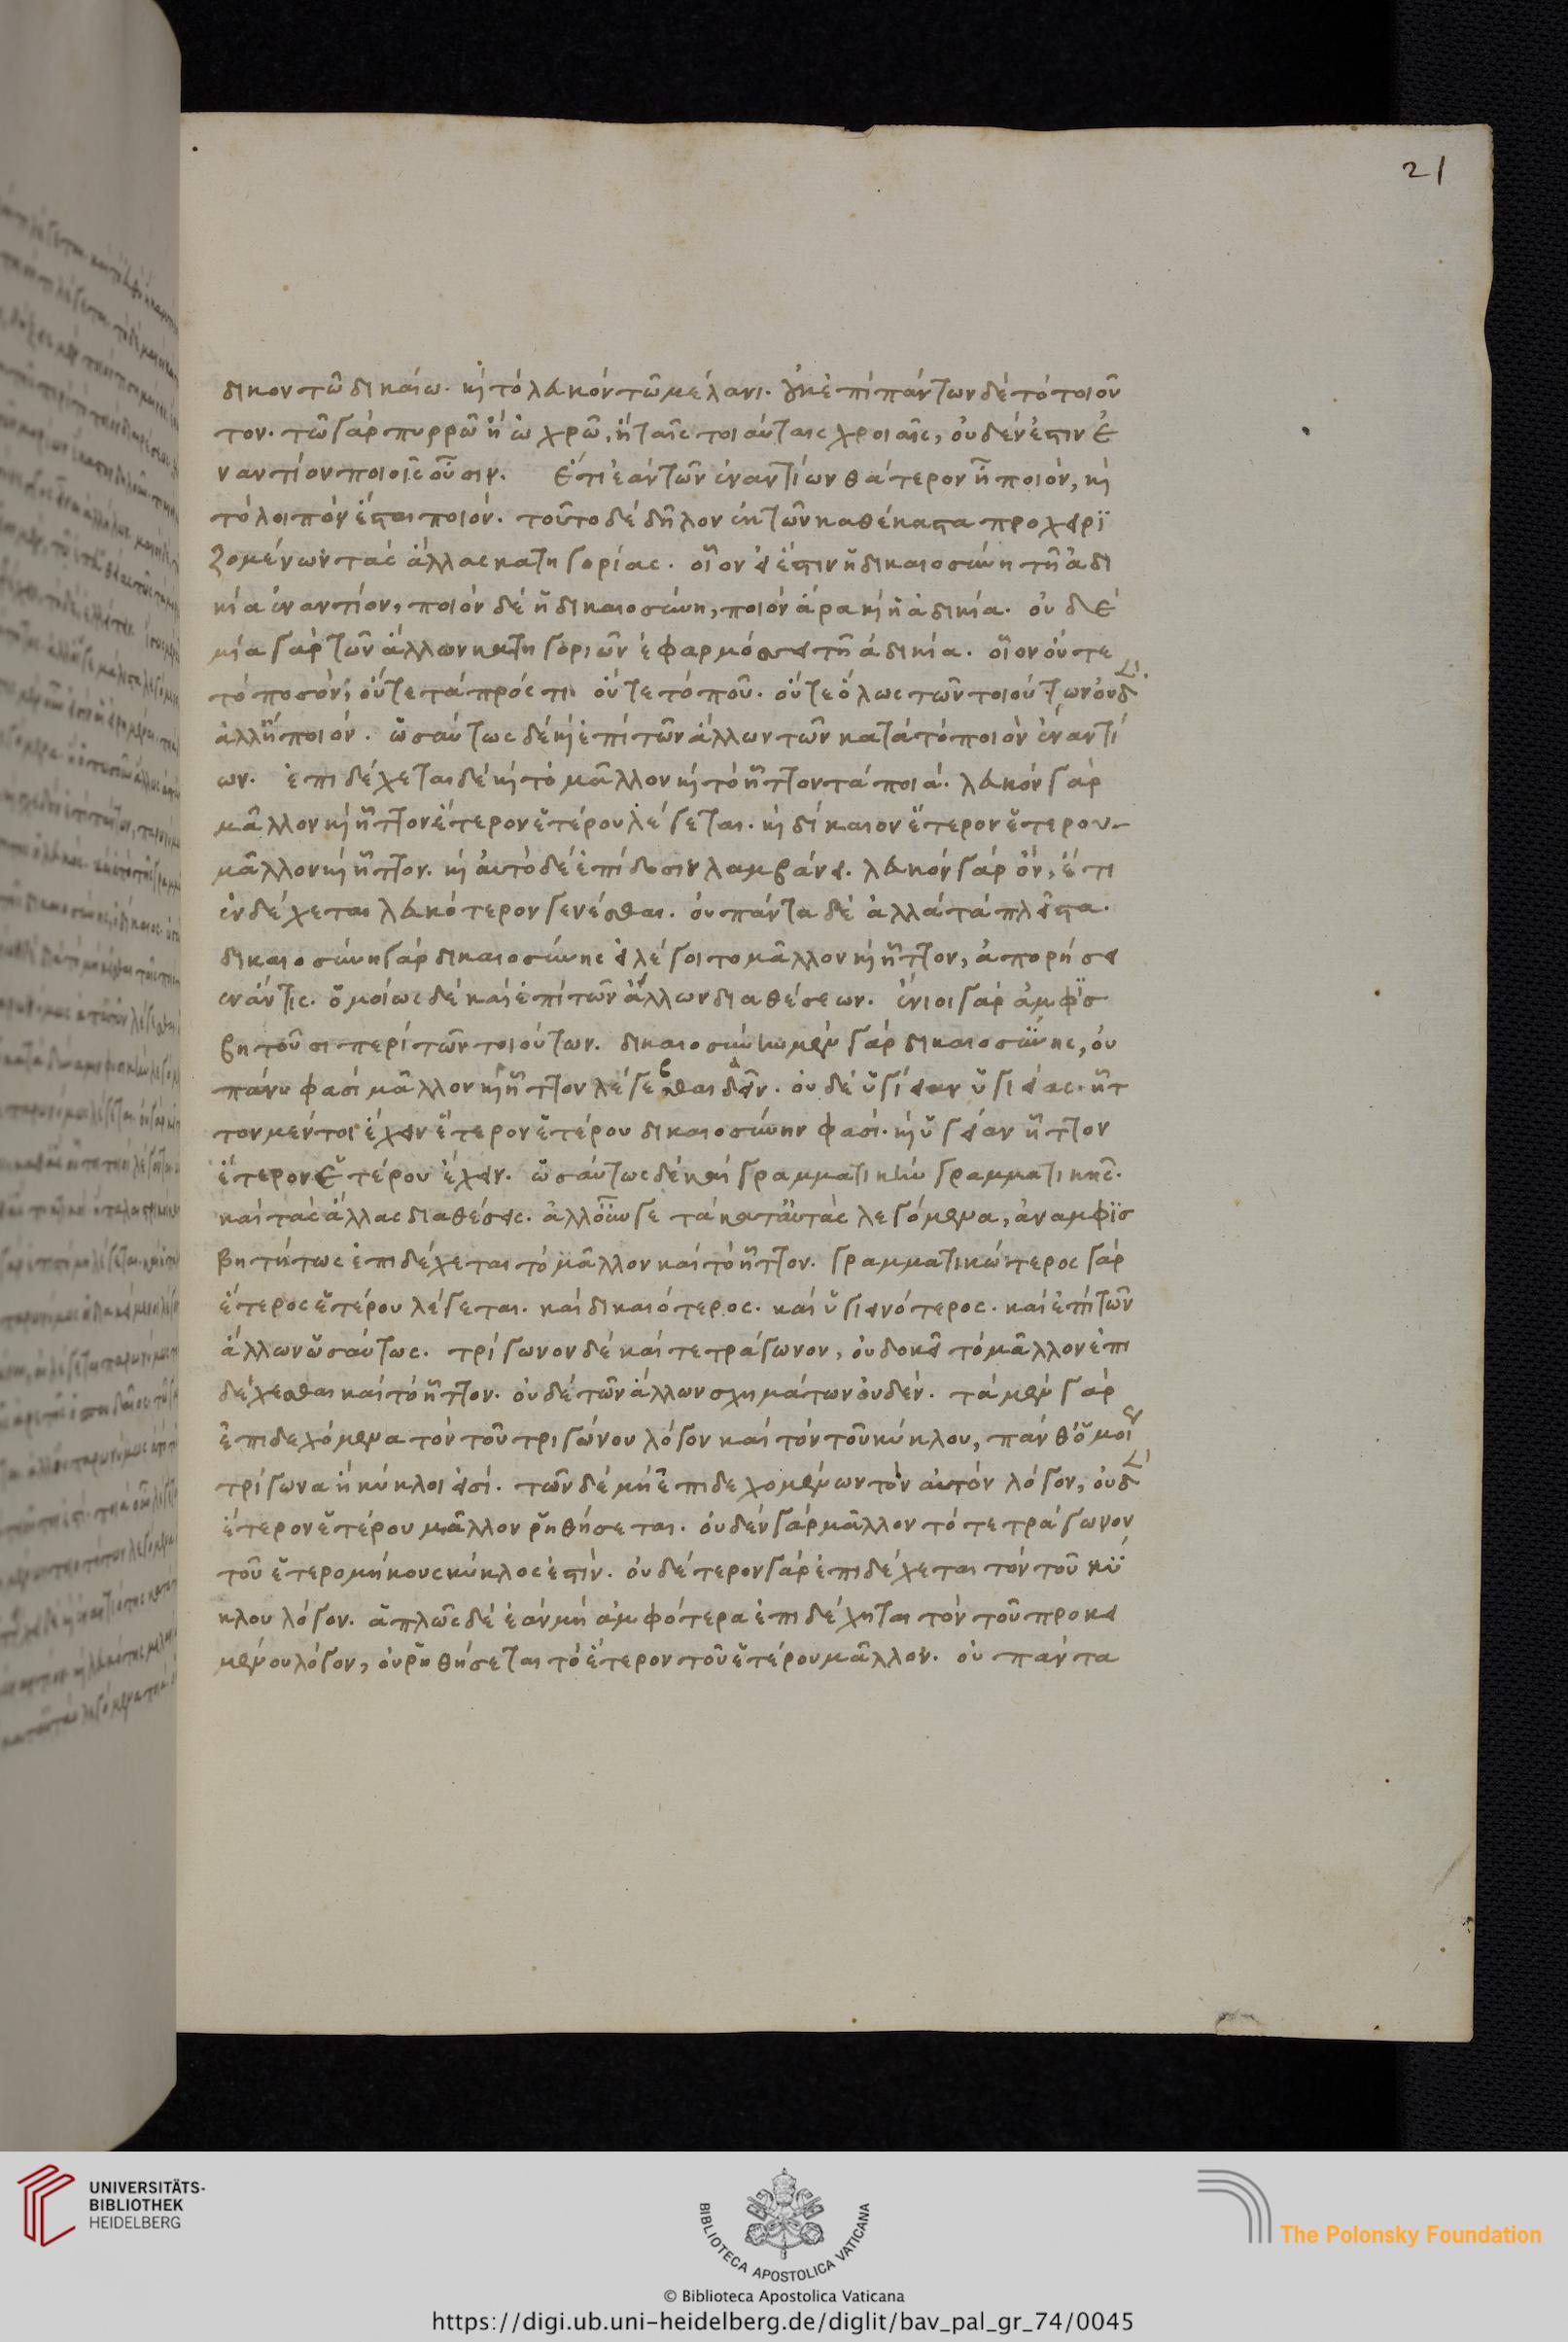 21
δικον τῶ δικαίω. καὶ τὸ λευκὸν τῶ μέλανι. οὐκ ἐπὶ πάντων δὲ τὸ τοιοῦ
τον. τῶ γὰρ πυρρῶ ἢ ὠχρῶ, ἢ ταῖς τοιαύταις χροιαῖς, οὐδέν ἐστιν ἐ
ναντίον ποιοῖς οὖσιν. Ἔτι ἐὰν τῶν ἐναντίων θάτερον ἦ ποιόν, καὶ
τὸ λοιπὸν ἔσται ποιόν. τοῦτο δὲ δῆλον ἐκ τῶν καθέκαστα προχειρϊ
ζομένων τὰς ἄλλας κατηγορίας. οἷον εἰ ἔστιν ἡ δικαιοσύνη τῆ ἀδι
κία ἐναντίον, ποιὸν δὲ ἡ δικαιοσύνη, ποιὸν ἄρα καὶ ἡ ἀδικία. οὐδε
μία γὰρ τῶν ἄλλων κατηγοριῶν ἐφαρμόσει τῆ ἀδικία. οἷον οὔτε
τὸ ποσόν, οὔτε τὰ πρός τι οὔτε τὸ ποῦ. οὔτε ὅλως τῶν τοιούτων οὐδὲν.
ἀλλ' ἢ ποιόν. ὡσαύτως δὲ καὶ ἐπὶ τῶν ἄλλων τῶν κατὰ τὸ ποιὸν ἐναντί
ων. ἐπιδέχεται δὲ καὶ τὸ μᾶλλον καὶ τὸ ἧττον τὰ ποιά. λευκὸν γὰρ
μᾶλλον καὶ ἧττον ἕτερον ἑτέρου λέγεται. καὶ δίκαιον ἕτερον ἑτέρου
μᾶλλον καὶ ἧττον. καὶ αὐτὸ δὲ ἐπίδοσιν λαμβάνει. λευκὸν γὰρ ὄν, ἔτι
ἐνδέχεται λευκότερον γενέσθαι. οὐ πάντα δὲ ἀλλὰ τὰ πλεῖστα.
δικαιοσύνη γὰρ δικαιοσύνης εἰ λέγοιτο μᾶλλον καὶ ἧττον, ἀπορήσει
εν ἄν τις. ὁμοίως δὲ καὶ ἐπὶ τῶν ἄλλων διαθέσεων. ἔνιοι γὰρ ἀμφϊσ
βητοῦσι περὶ τῶν τοιούτων. δικαιοσύνην μὲν γὰρ δικαιοσύνης, οὐ
πάνυ φασὶ μᾶλλον καὶ ἧττον λέγεσθαι δεῖν. οὐδὲ ὑγίειαν ὑγιείας. ἧτ
τον μέντοι ἔχειν ἕτερον ἑτέρου δικαιοσύνην φασί. καὶ ὑγείαν ἧττον
ἕτερον ἑτέρου ἔχειν. ὡσαύτως δὲ καὶ γραμματικὴν γραμματικῆς.
καὶ τὰς ἄλλας διαθέσεις. ἀλλ' οὖν γε τὰ κατ' αὐτὰς λεγόμενα, ἀναμφϊσ
βητήτως ἐπιδέχεται τὸ μᾶλλον καὶ τὸ ἧττον. γραμματικώτερος γὰρ
ἕτερος ἑτέρου λέγεται. καὶ δικαιότερος. καὶ ὑγιεινότερος. καὶ ἐπὶ τῶν
ἄλλων ὡσαύτως. τρίγωνον δὲ καὶ τετράγωνον, οὐ δοκεῖ τὸ μᾶλλον ἐπι
δέχεσθαι καὶ τὸ ἧττον. οὐδὲ τῶν ἄλλων σχημάτων οὐδέν. τὰ μὲν γὰρ
ἐπιδεχόμενα τὸν τοῦ τριγώνου λόγον καὶ τὸν τοῦ κύκλου, πάνθ' ὁμοίως
τρίγωνα ἢ κύκλοι εἰσί. τῶν δὲ μὴ ἐπιδεχομένων τὸν αὐτὸν λόγον, οὐδὲν
ἕτερον ἑτέρου μᾶλλον ῥηθήσεται. οὐδὲν γὰρ μᾶλλον τὸ τετράγωνον
τοῦ ἑτερομήκους κύκλος ἐστίν. οὐδέτερον γὰρ ἐπιδέχεται τὸν τοῦ κύ
κλου λόγον. ἁπλῶς δὲ ἐὰν μὴ ἀμφότερα ἐπιδέχηται τὸν τοῦ προκει
μένου λόγον, οὐ ῥηθήσεται τὸ ἕτερον τοῦ ἑτέρου μᾶλλον. οὐ πάντα
UNIVERSITÄTS-
BIBLIOTHEK
HEIDELBERG
BIBLIOTECA APOSTOLICA VATICANA
The Polonsky Foundation
© Biblioteca Apostolica Vaticana
https://digi.ub.uni-heidelberg.de/diglit/bav_pal_gr_74/0045